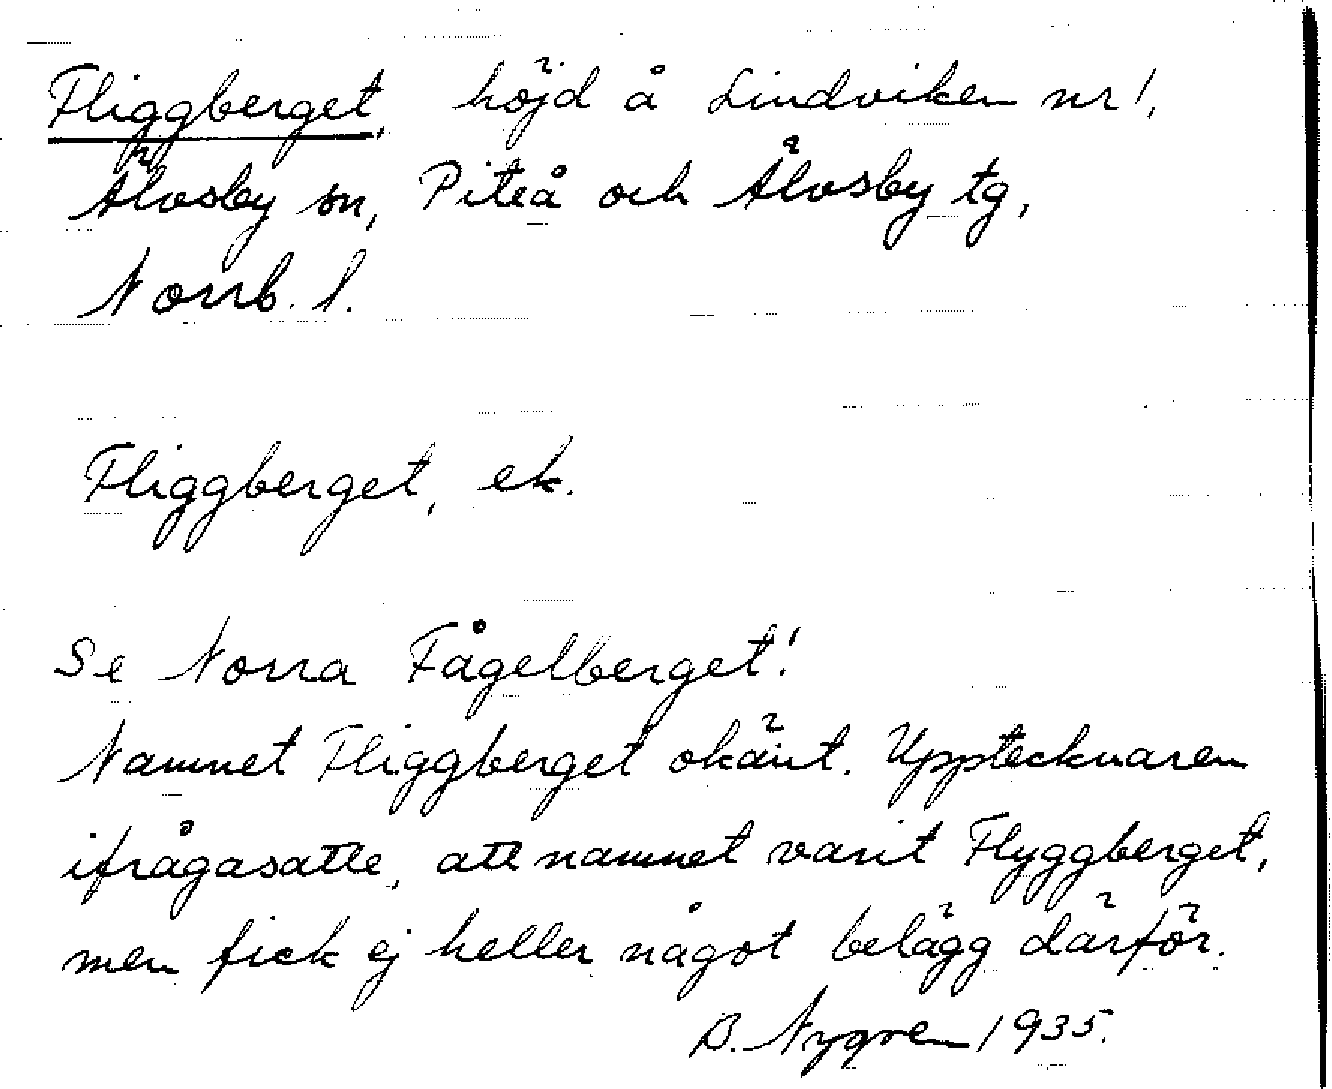 Fliggberget, höjd å Lindviken nr 1,
Älvsby sn, Piteå och Älvsby tg,
Norrb. l.
Fliggberget, ek.
Se Norra Fågelberget!
Namnet Fliggberget okänt. Upptecknaren
ifrågasatte, att namnet varit Flyggberget,
men fick ej heller något belägg därför.
B. Nygren 1935.